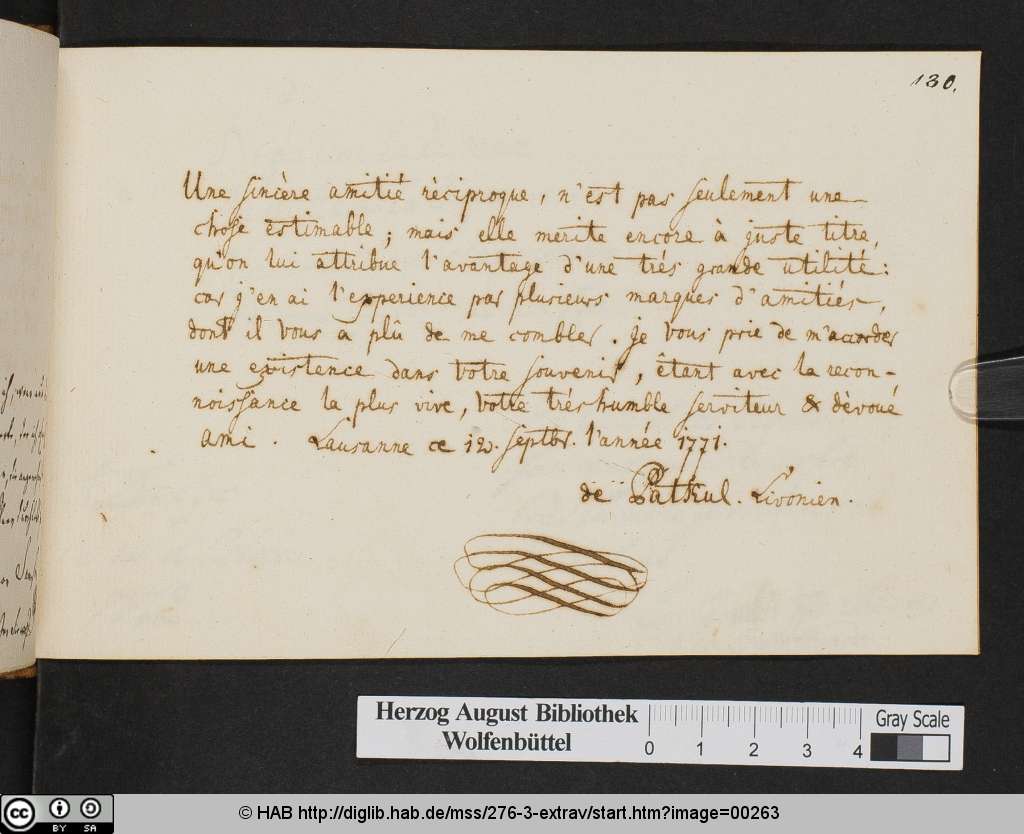 130.
Une sincère amitié rèciproque, n'est pas seulement une
chose estimable; mais elle merite encore à juste titre,
qu'on lui attribue l'avantage d'une trés grande utilité:
car j'en ai l'experience par plusieurs marques d'amitiés,
dont il vous a plû de me combler. je vous prie de m'acorder
une existence dans votre souvenir, êtant avec la recon-
noissance la plus vive, votre trés humble serviteur & dèvoué
ami. Lausanne ce 12. septbr. l'année 1771.
de Patkul. Livonien.
Herzog August Bibliothek
Wolfenbüttel
0 1 2 3 4
Gray Scale
cc BY SA
© HAB http://diglib.hab.de/mss/276-3-extrav/start.htm?image=00263